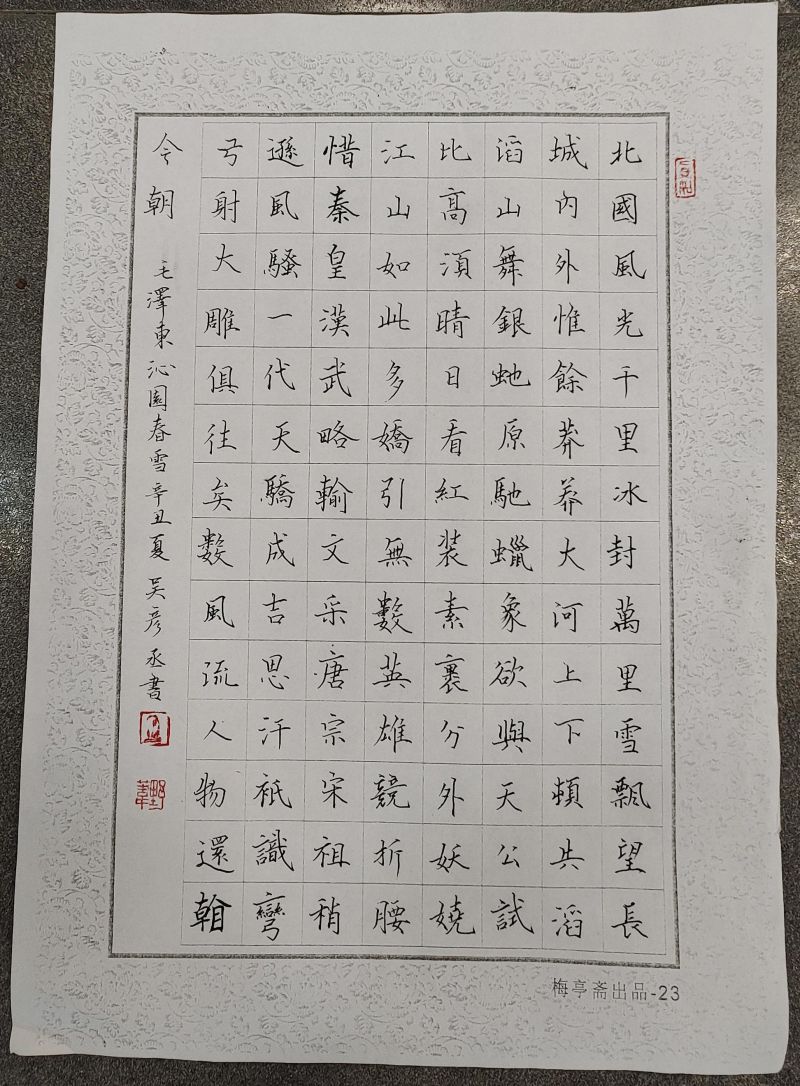 北國風光千里冰封萬里雪飄望長
城內外惟餘莽莽大河上下頓共滔
滔山舞銀虵原馳蠟象欲與天公試
比高須晴日看紅裝素裹分外妖嬈
江山如此多嬌引無數英雄競折腰
惜秦皇漢武略輸文采唐宗宋祖稍
遜風騷一代天驕成吉思汗衹識彎
弓射大雕俱往矣數風流人物還
今朝 毛澤東沁園春雪辛丑夏 吴彦丞書
梅亭斋出品-23